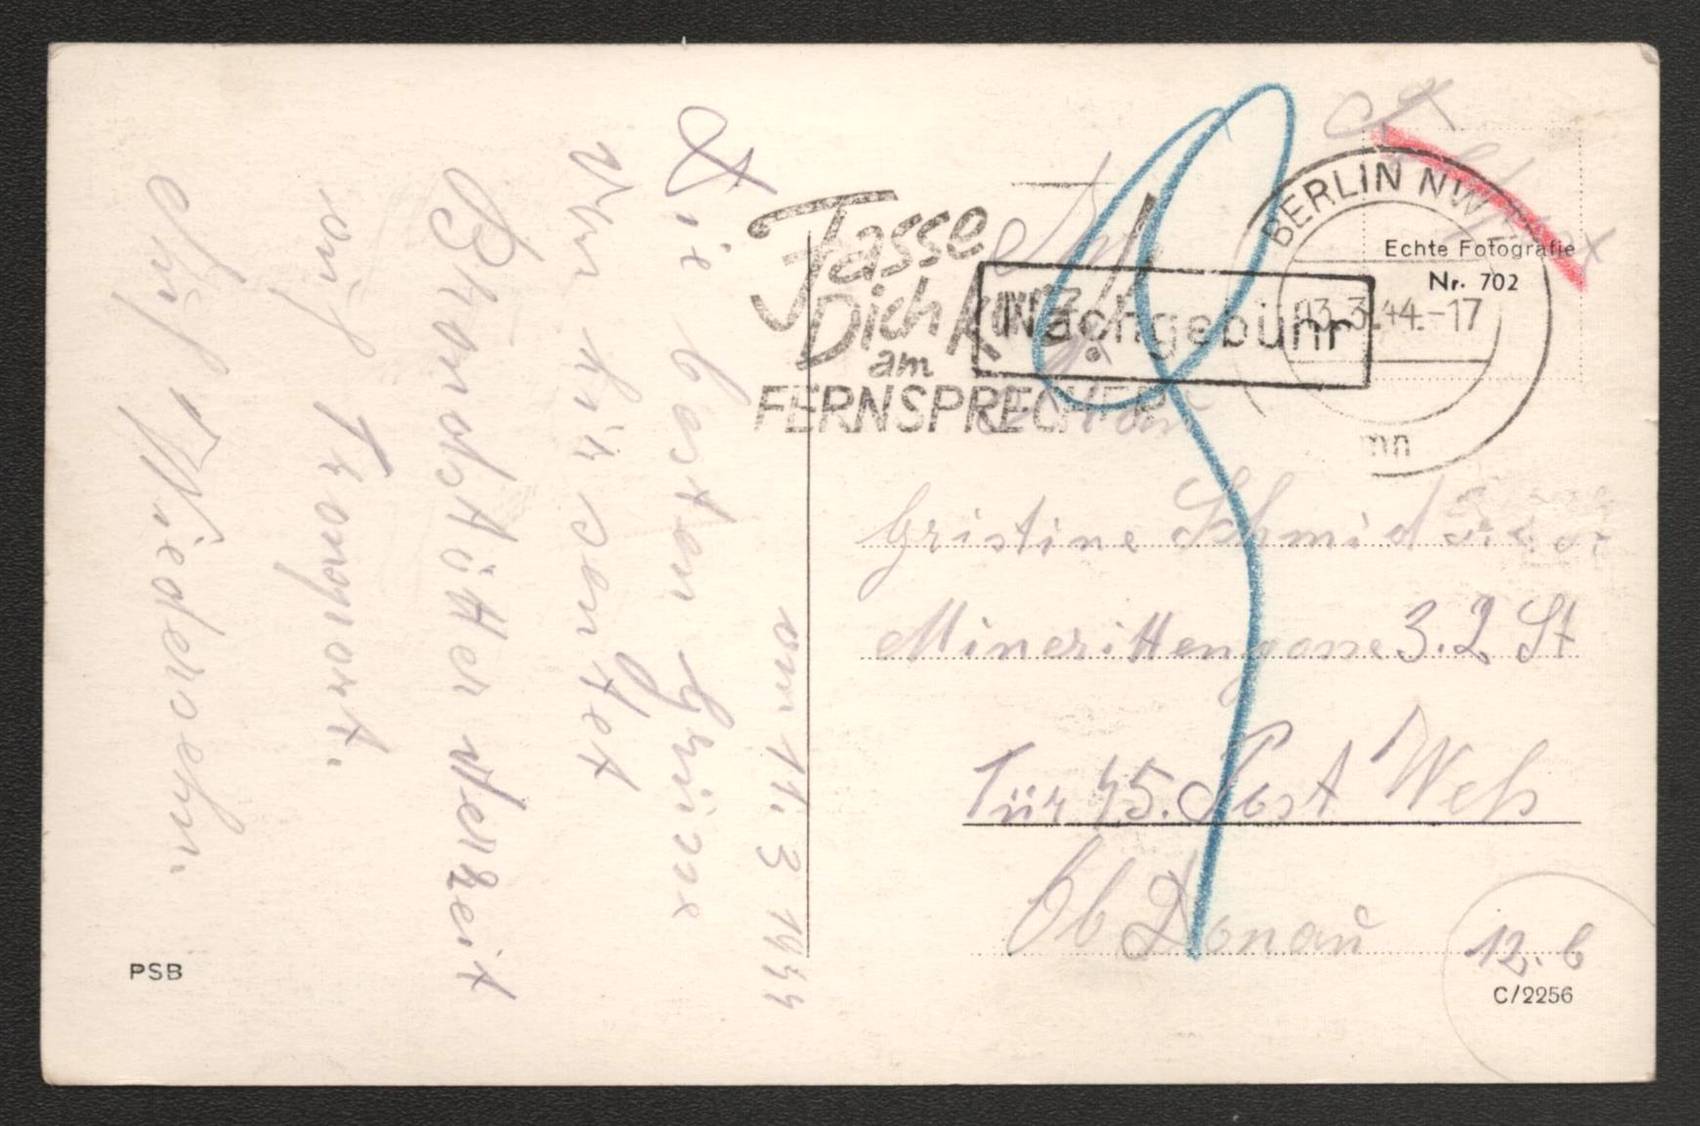 am 11. 3 1944
Die besten Grüsse
Bronstätter derzeit
auf Transport.
Auf Wiedersehn
Fasse
Dich Kurz!
am
FERNSPRECHER
Nachgebühr
BERLIN NW
13.3.44.-17
mn
Echte Fotografie
Nr. 702
Gristine Schmid
Minorittengasse 3. 2 St
Tür 45. Post Wels
Ob Donau
12. b
C/2256
PSB